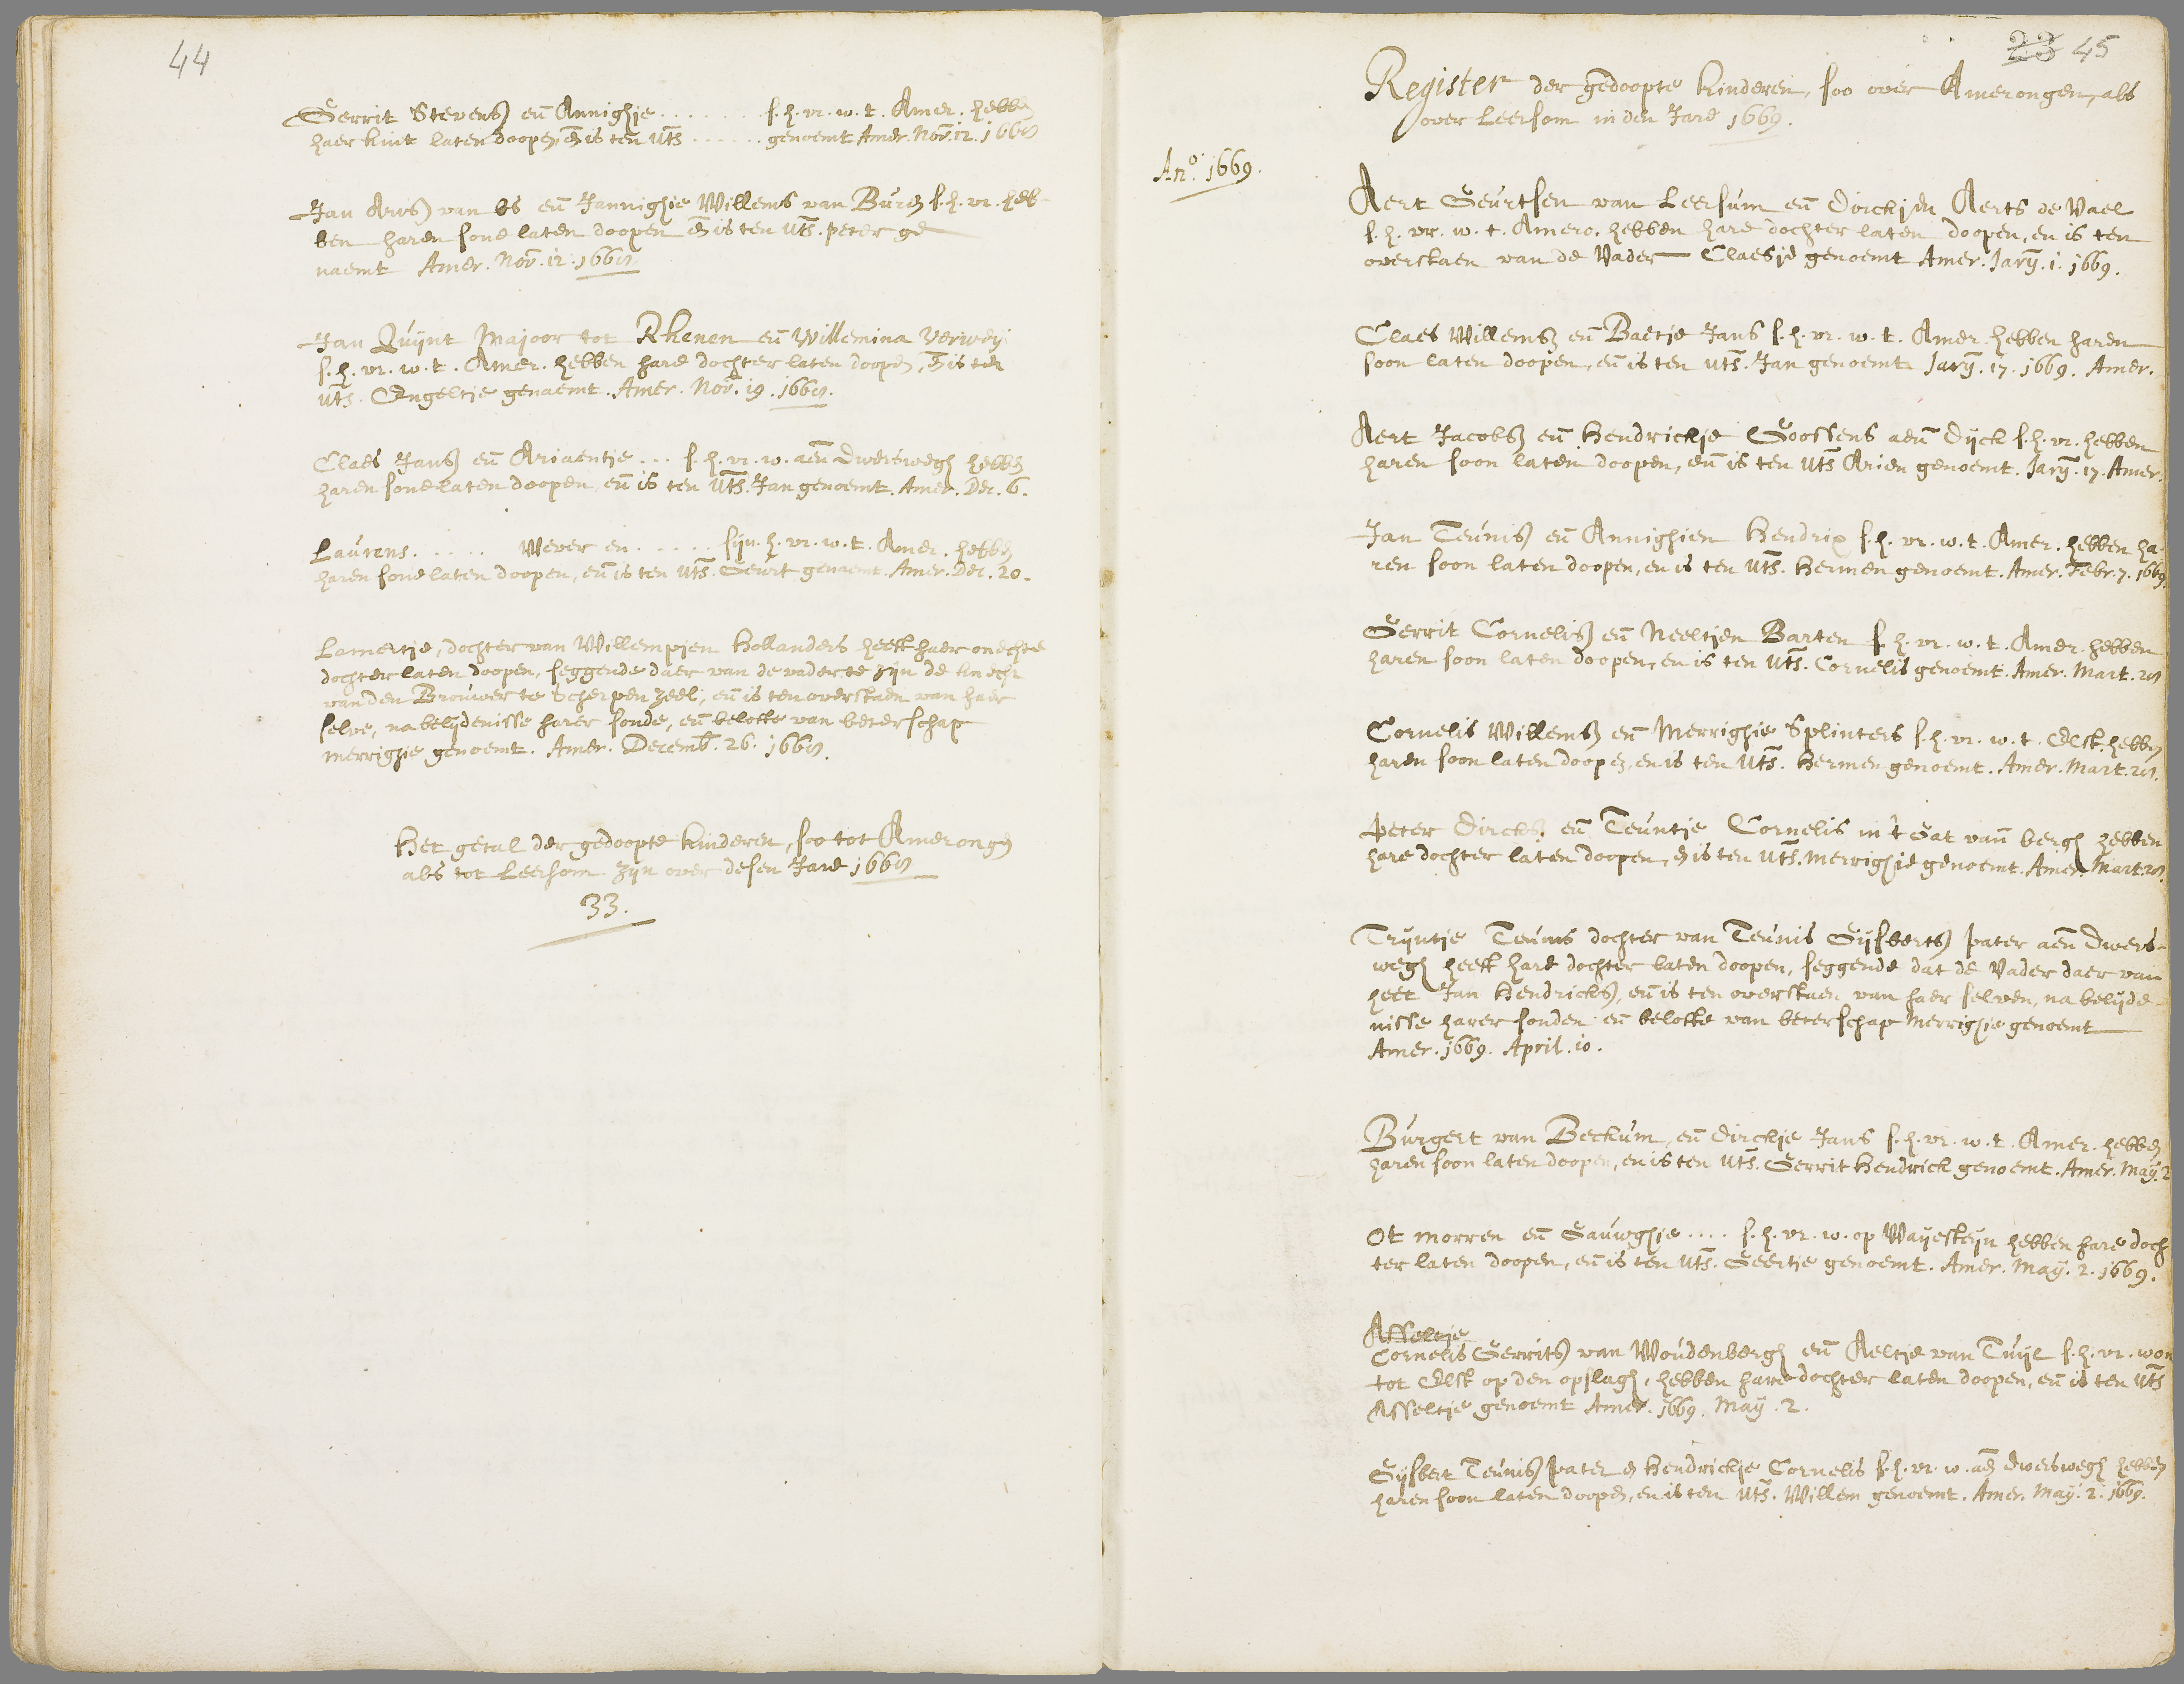 44
Gerrit Stevens en Annighje ........ s.h.vr.w.t. Amer. hebben
haer kint laten doopen, en is ten uts ...... genoemt Amer. Nov. 12. 1668
Jan Aris van Es en Jannighje Willems van Buren s.h.vr. heb-
ben haren sone laten doopen en is ten uts. peter ge
naemt Amer. Nov. 12. 1668
Jan Quÿnt Majoor tot Rhenen en Willemina Verweÿ
s.h.vr.w.t. Amer. hebben hare dochter laten doopen, en is ten
uts. Engeltje genaemt. Amer. Nov. 19. 1668.
Claes Jans en Ariaentje ... s.h.vr.w. aen Dwerswegh hebben
haren sone laten doopen, en is ten uts. Jan genoemt. Amer. Dec. 6.
Laurens ..... Wever en ..... sijn.h.vr.w.t. Amer. hebben
haren sone laten doopen, en is ten uts. Geurt genaemt. Amer. Dec. 20.
Lamertje, dochter van Willempjen Hollanders heeft haer onechte
dochter laten doopen, seggende daer van de vader te zijn de knecht
van den Brouwer te Scherpenzeel, en is ten overstaen van haer
selve, na belijdenisse harer sonde, en belofte van beterschap
Merrighje genoemt. Amer. Decemb. 26. 1668.
Het getal der gedoopte kinderen, soo tot Amerongen
als tot Leersom zijn over desen Jare 1668
33.
23 45
Register der gedoopte kinderen, soo over Amerongen, als
over Leersom in den Jare 1669.
Ano. 1669.
Aert Geurtsen van Leersum en Dirckjen Aerts de Vael
s.h.vr.w.t. Amero. hebben hare dochter laten doopen, en is ten
overstaen van de Vader Claesje genoemt Amer. Jarÿ. 1. 1669.
Claes Willems en Baetje Jans s.h.vr.w.t. Amer. hebben haren
soon laten doopen, en is ten uts. Jan genoemt Jarÿ. 17. 1669. Amer.
Aert Jacobs en Hendrickje Goossens aen Dijck s.h.vr. hebben
haren soon laten doopen, en is ten uts Arien genoemt. Jarÿ. 17. Amer.
Jan Teunis en Annighien Hendrix s.h.vr.w.t. Amer. hebben ha-
ren soon laten doopen, en is ten uts. Hermen genoemt. Amer. Febr. 7. 1669.
Gerrit Cornelis en Neeltjen Barten s.h.vr.w.t. Amer. hebben
haren soon laten doopen, en is ten uts. Cornelis genoemt. Amer. Mart. 28
Cornelis Willems en Merrighje Splinters s.h.vr.w.t. Elst. hebben
haren soon laten doopen, en is ten uts. Hermen genoemt. Amer. Mart. 28.
Peter Dircks. en Teuntje Cornelis in 't Gat van bergh hebben
hare dochter laten doopen, en is ten uts. Merrighje genoemt. Amer. Mart. 28.
Trijntje Teunis dochter van Teunis Gijsberts Pater aen Dwers-
wegh heeft hare dochter laten doopen, seggende dat de Vader daer van
heet Jan Hendricks, en is ten overstaen van haer selven, na belijde-
nisse harer sonden en belofte van beterschap Merrighje genoemt
Amer. 1669. April. 10.
Burgert van Beckum, en Dirckje Jans s.h.vr.w.t. Amer. hebben
haren soon laten doopen, en is ten uts. Gerrit Hendrick genoemt. Amer. Maÿ. 2
Ot Morren en Gauwghje .... s.h.vr.w. op Waijesteijn hebben hare doch
ter laten doopen, en is ten uts. Geertje genoemt. Amer. Maÿ. 2. 1669.
Asseltje
Cornelis Gerrits van Woudenbergh en Aeltje van Tuijl s.h.vr. won
tot Elst op den opslagh, hebben hare dochter laten doopen, en is ten uts
Asseltje genoemt Amer. 1669. Maÿ. 2.
Gijsbert Teunis Pater en Hendrickje Cornelis s.h.vr.w. aen Dwerswegh hebben
haren soon laten doopen, en is ten uts. Willem genoemt. Amer. Maÿ. 2. 1669.